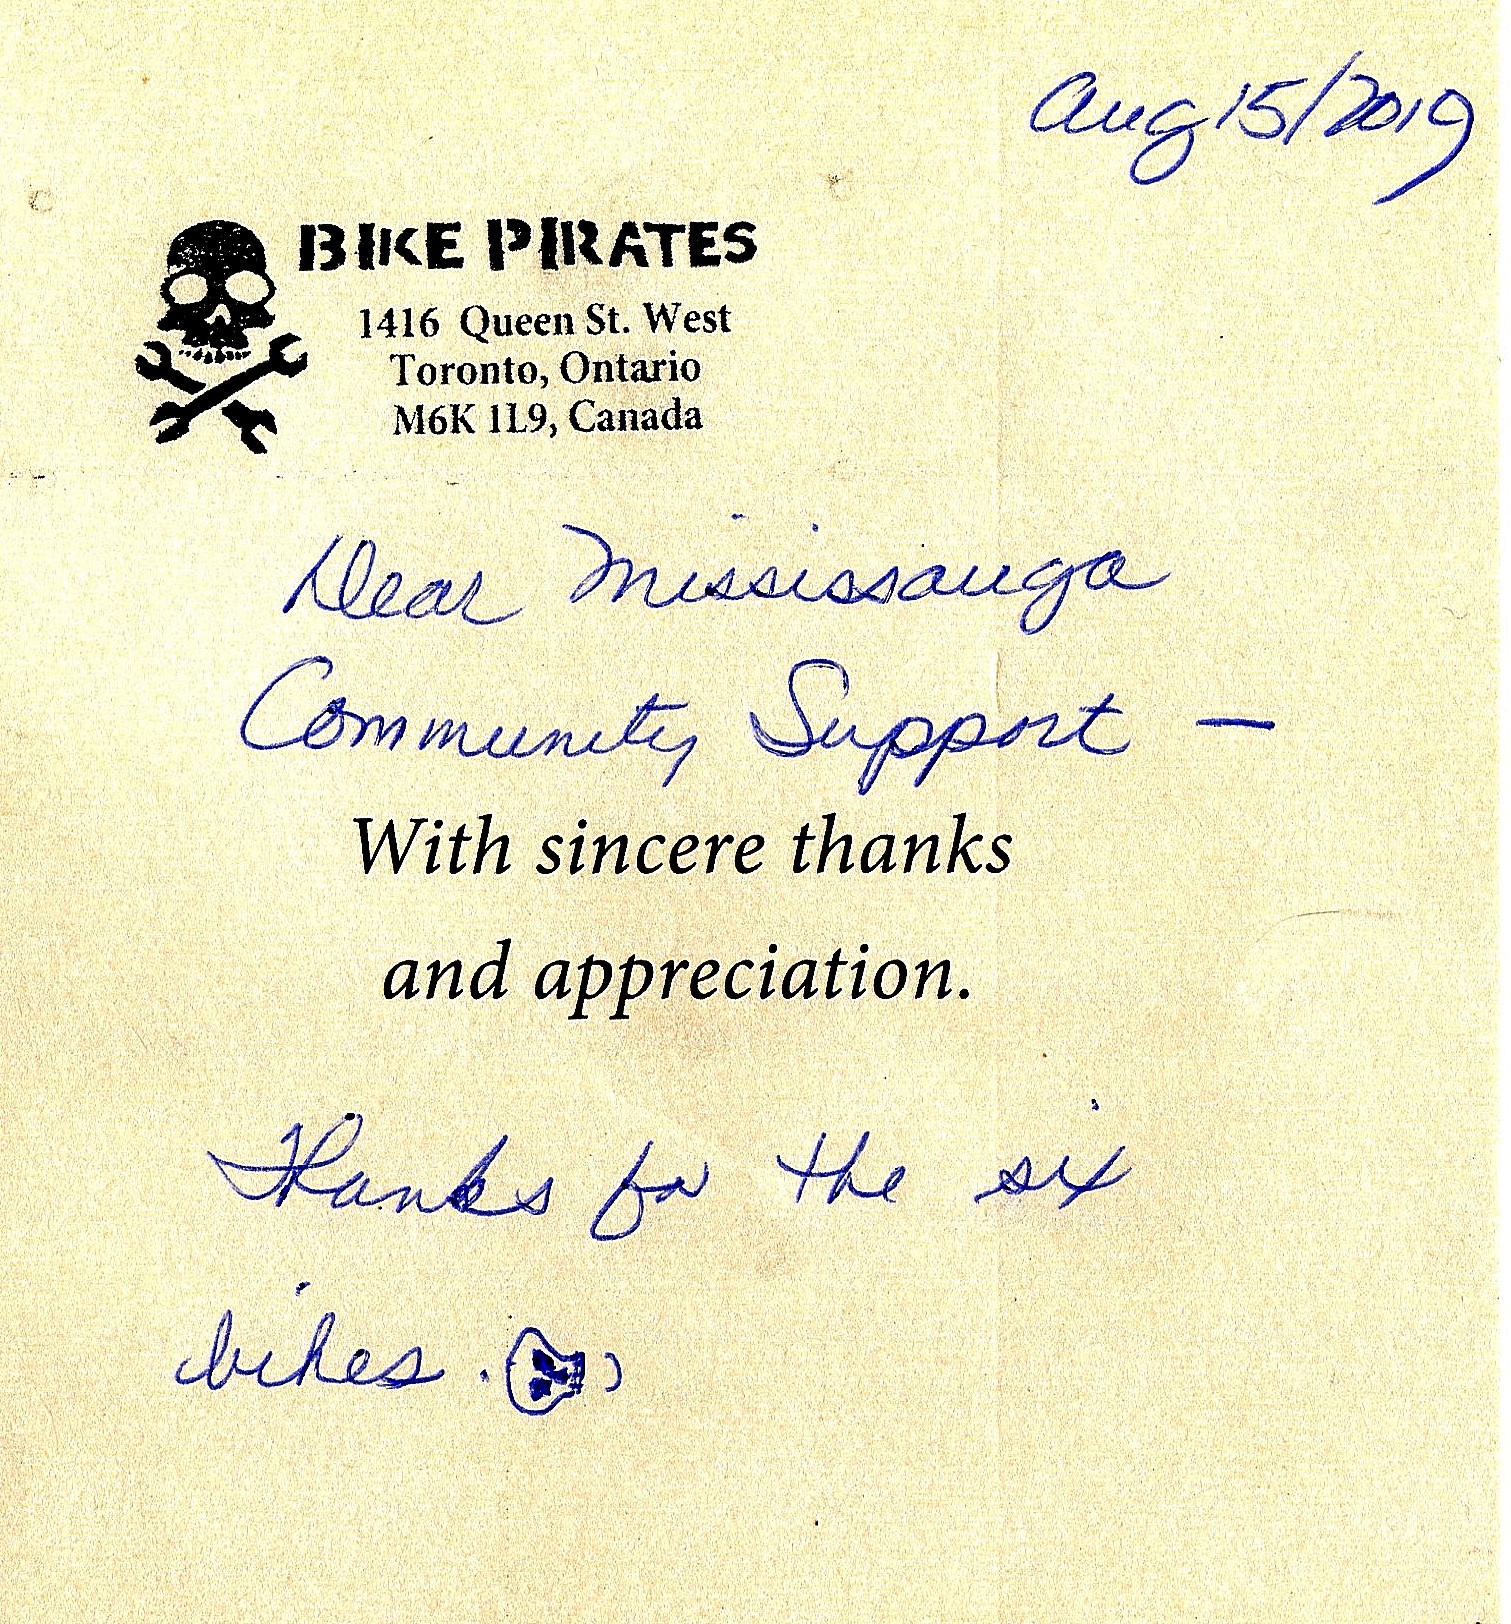 Aug 15/2019
BIKE PIRATES
1416 Queen St. West
Toronto, Ontario
M6K 1L9, Canada
Dear Mississauga
Community Support —
With sincere thanks
and appreciation.
Thanks for the six
bikes.